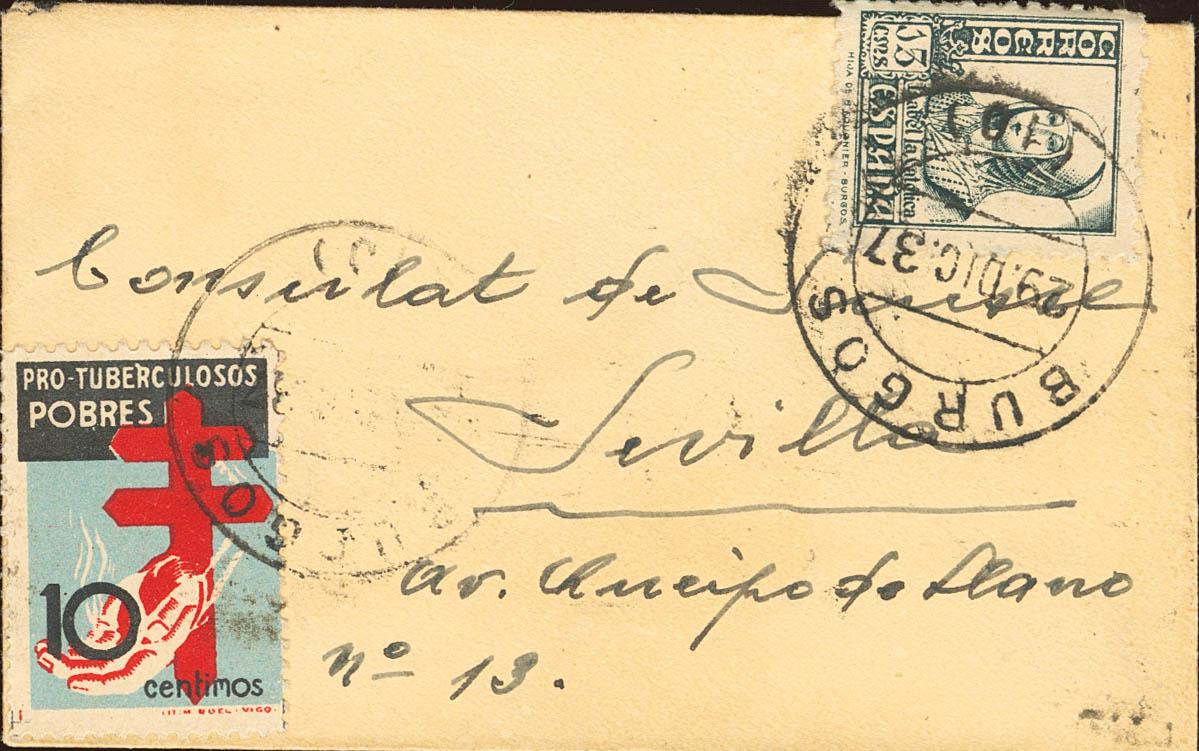 CORREOS
15 CTS
ESPAÑA
Isabel la Católica
HIJA DE B. FOURNIER - BURGOS.
29.DIC.37
BURGOS
Consulat de Suisse
Sevilla
Av. Queipo de Llano
nº 13.
PRO-TUBERCULOSOS
POBRES
10
centimos
LIT. M. ROEL - VIGO.
BURGOS